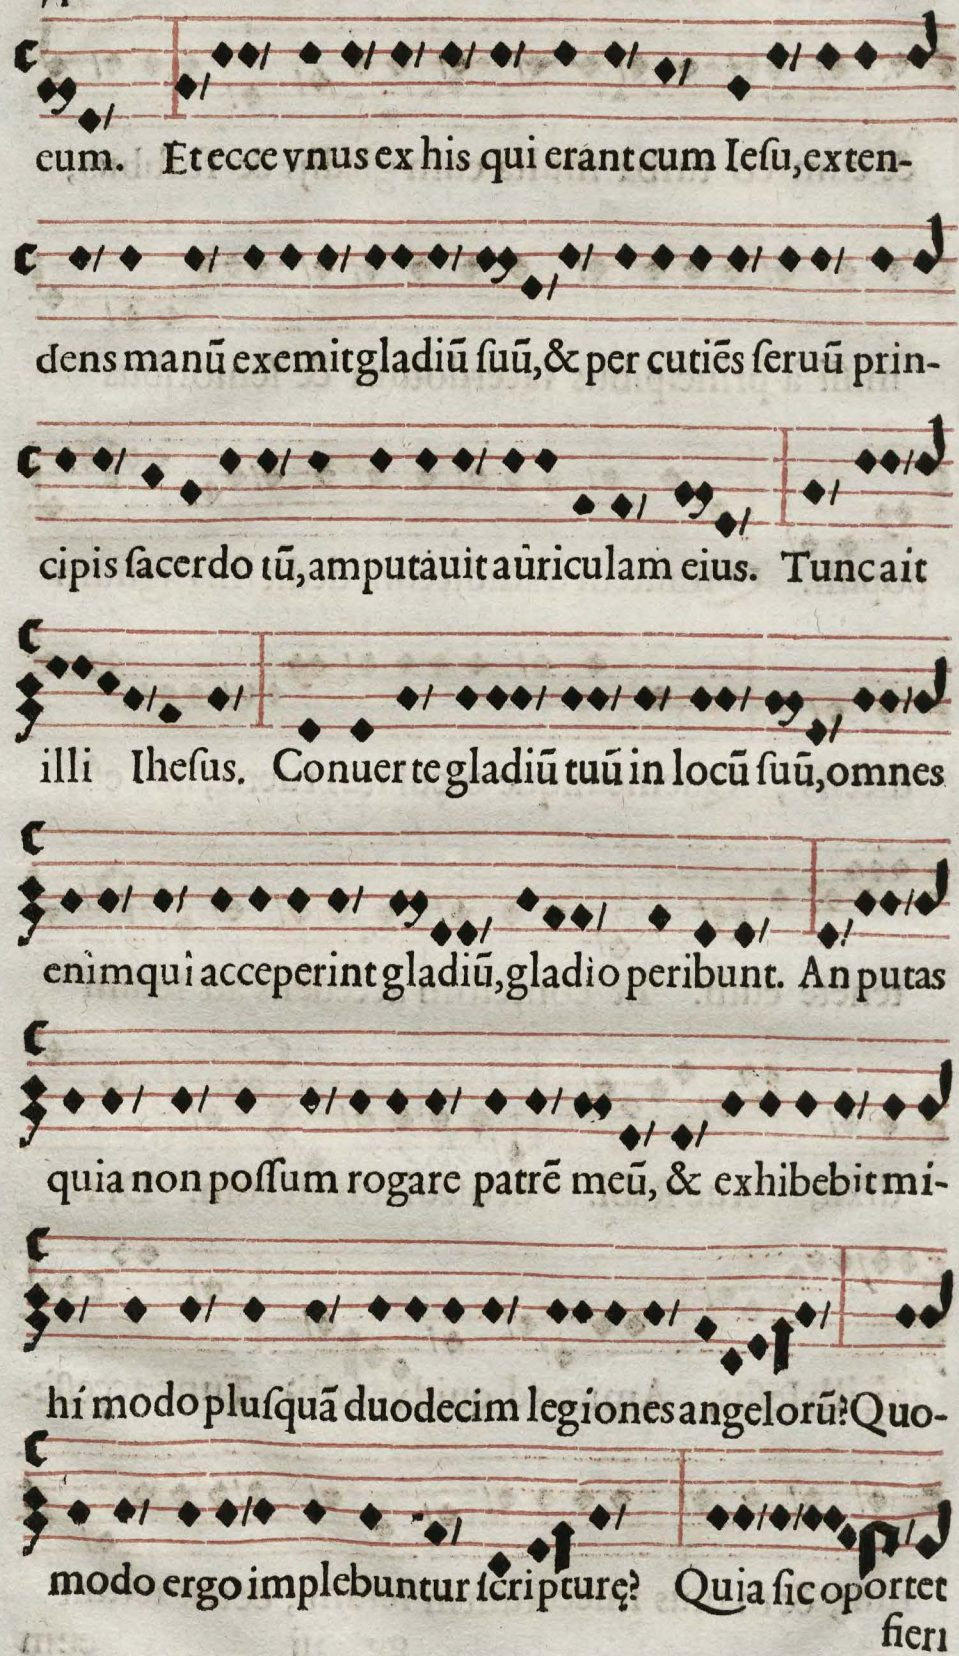 eum. Et ecce vnus ex his qui erant cum Ieſu, exten-
dens manū exemit gladiū ſuū, & per cutiēs ſeruū prin-
cipis ſacerdo tū, amputauit auriculam eius. Tunc ait
illi Iheſus. Conuer te gladiū tuū in locū ſuū, omnes
enim qui acceperint gladiū, gladio peribunt. An putas
quia non poſſum rogare patrē meū, & exhibebit mi-
hi modo pluſquā duodecim legiones angelorū? Quo-
modo ergo implebuntur ſcripturę? Quia ſic oportet
fieri